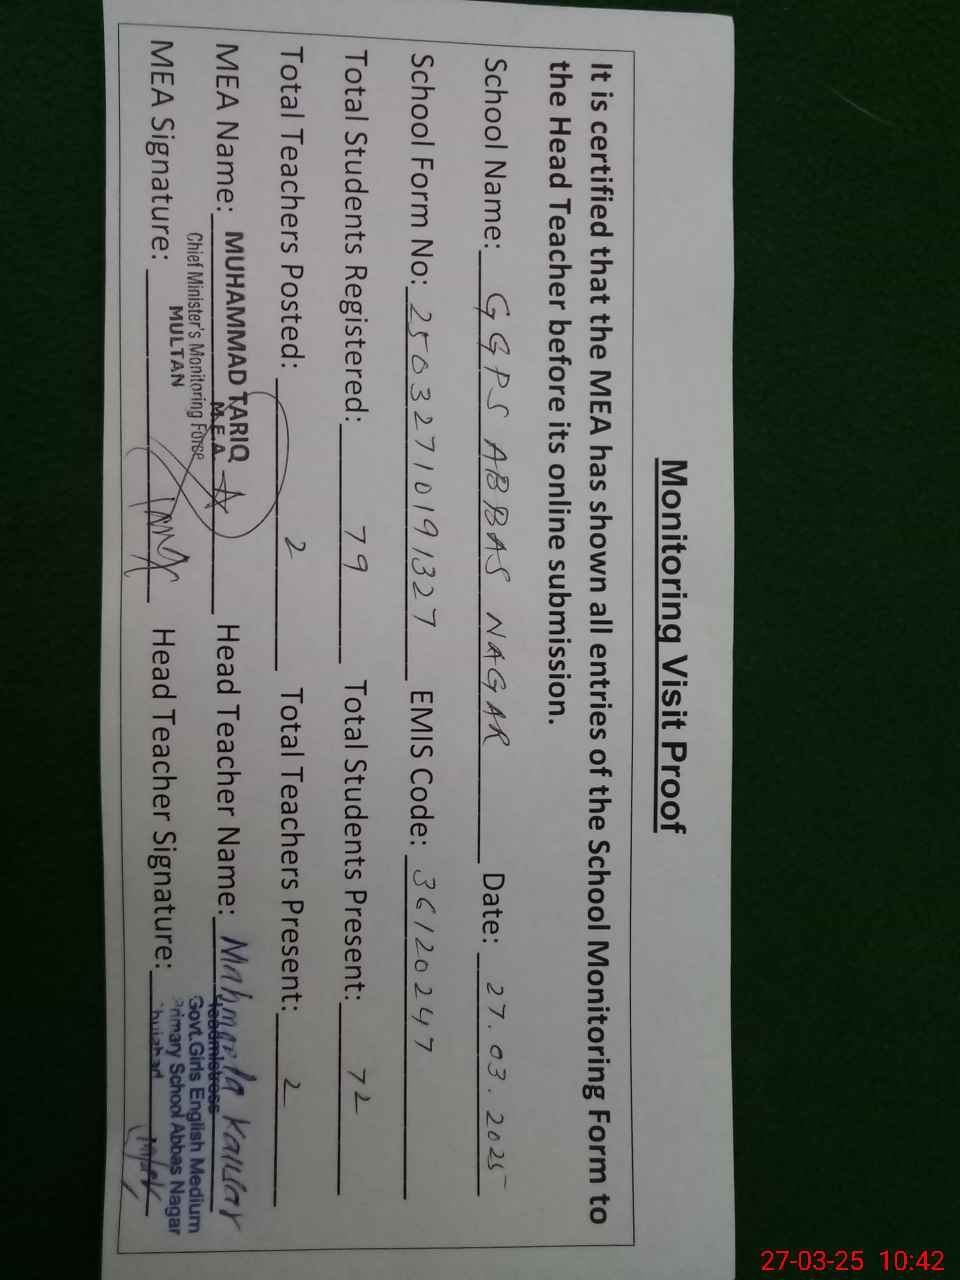 Monitoring Visit Proof
It is certified that the MEA has shown all entries of the School Monitoring Form to
the Head Teacher before its online submission.
School Name: GGPS ABBAS NAGAR Date: 27.03.2025
School Form No: 25032710191327 EMIS Code: 36120247
Total Students Registered: 79 Total Students Present: 72
Total Teachers Posted: 2 Total Teachers Present: 2
MEA Name: MUHAMMAD TARIQ Head Teacher Name: Kausar
M.E.A
Chief Minister's Monitoring Force
MULTAN
Headmistress
Govt.Girls English Medium
Primary School Abbas Nagar
MEA Signature: Head Teacher Signature:
27-03-25 10:42